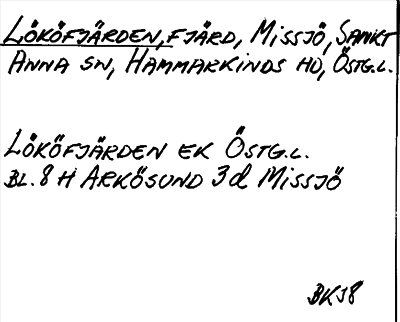 LÖKÖFJÄRDEN, FJÄRD, MISSJÖ, SANKT
ANNA SN, HAMMARKINDS HD, ÖSTG.L.
LÖKÖFJÄRDEN EK ÖSTG.L.
BL. 8 H ARKÖSUND 3d MISSJÖ
BKJ8